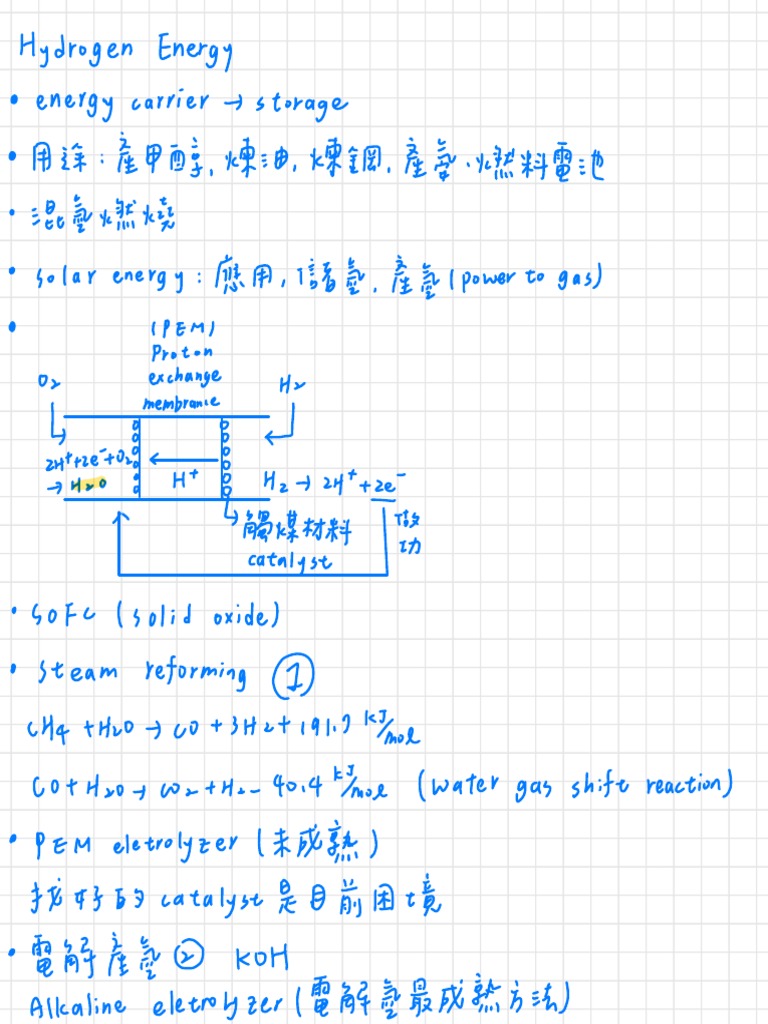 Hydrogen Energy
• energy carrier → storage
• 用途：產甲醇, 煉油, 煉鋼, 產氫、燃料電池
• 混氫燃燒
• solar energy : 應用, 儲氫, 產氫 (power to gas)
•
(PEM)
Proton
exchange
membrane
O₂
H₂
2H⁺+2e⁻+O₂
→ H₂O
H⁺
H₂ → 2H⁺+2e⁻
觸媒材料
catalyst
做
功
• SOFC (solid oxide)
• Steam reforming ①
CH₄ + H₂O → CO + 3H₂ + 191.7 kJ/mol
CO + H₂O → CO₂ + H₂ - 40.4 kJ/mol (water gas shift reaction)
• PEM eletrolyzer (未成熟)
找好的 catalyst 是目前困境
• 電解產氫 ② KOH
Alkaline eletrolyzer (電解氫最成熟方法)